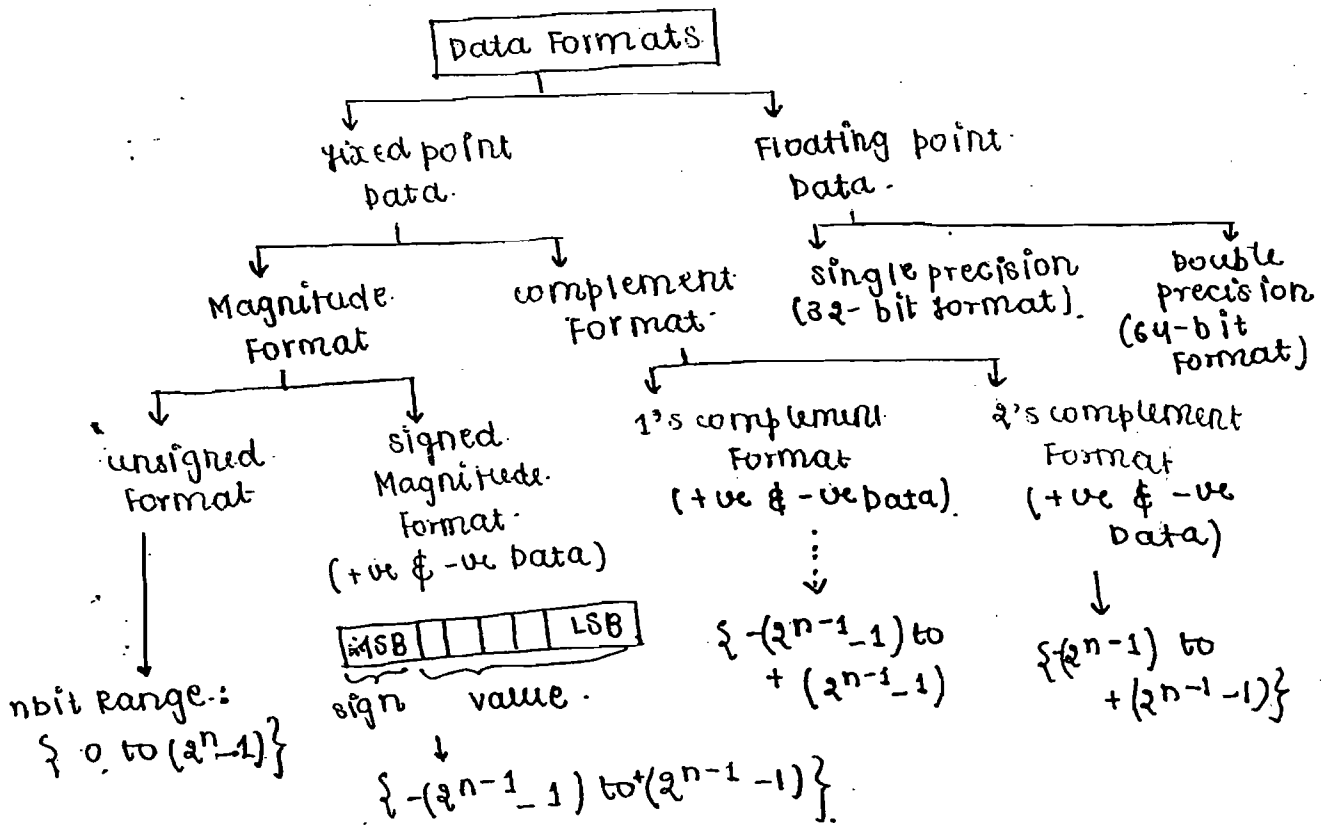 Data Formats
Fixed point
Data.
Floating point
Data.
Magnitude
Format
complement
Format.
single precision
(32-bit format).
Double
precision
(64-bit
Format)
unsigned
Format
signed
Magnitude
Format.
(+ve & -ve Data)
1's complement
Format
(+ve & -ve Data).
2's complement
Format
(+ve & -ve
Data)
MSB LSB
sign value.
nbit Range:
{ 0 to (2ⁿ-1)}
{-(2ⁿ⁻¹-1) to +(2ⁿ⁻¹-1)}.
{-(2ⁿ⁻¹-1) to
+(2ⁿ⁻¹-1)
{-(2ⁿ⁻¹) to
+(2ⁿ⁻¹-1)}